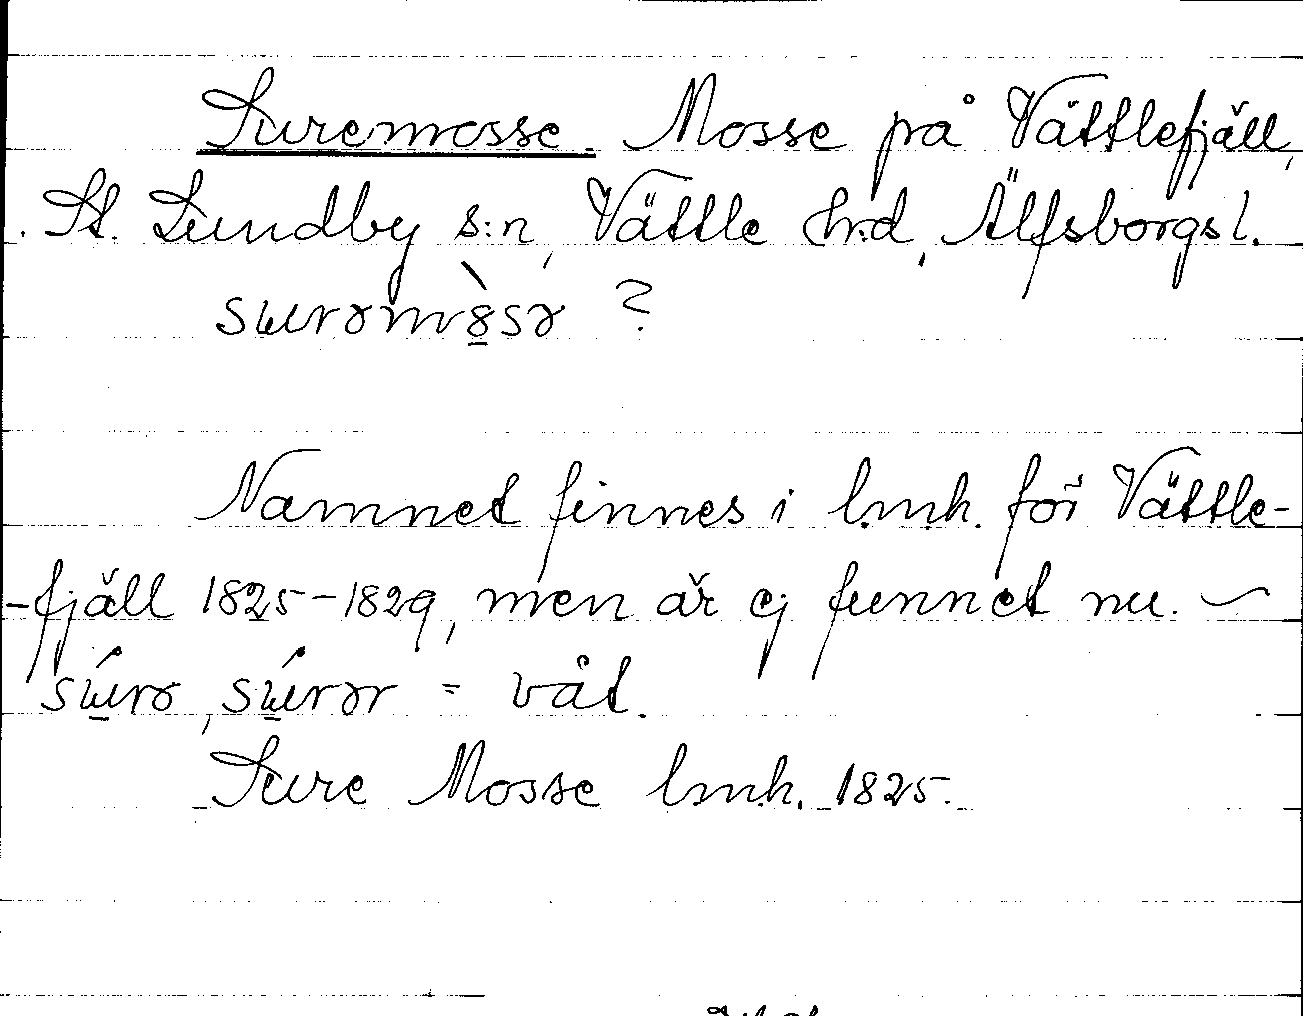 Suremosse. Mosse på Vättlefjäll,
St. Lundby s:n, Vättle h:d, Älfsborgs l.
surəmòsə ?
Namnet finnes i lmh. för Vättle-
-fjäll 1825-1829, men är ej funnet nu. ~
súrə, súrər = våt.
Sure Mosse lmh. 1825.